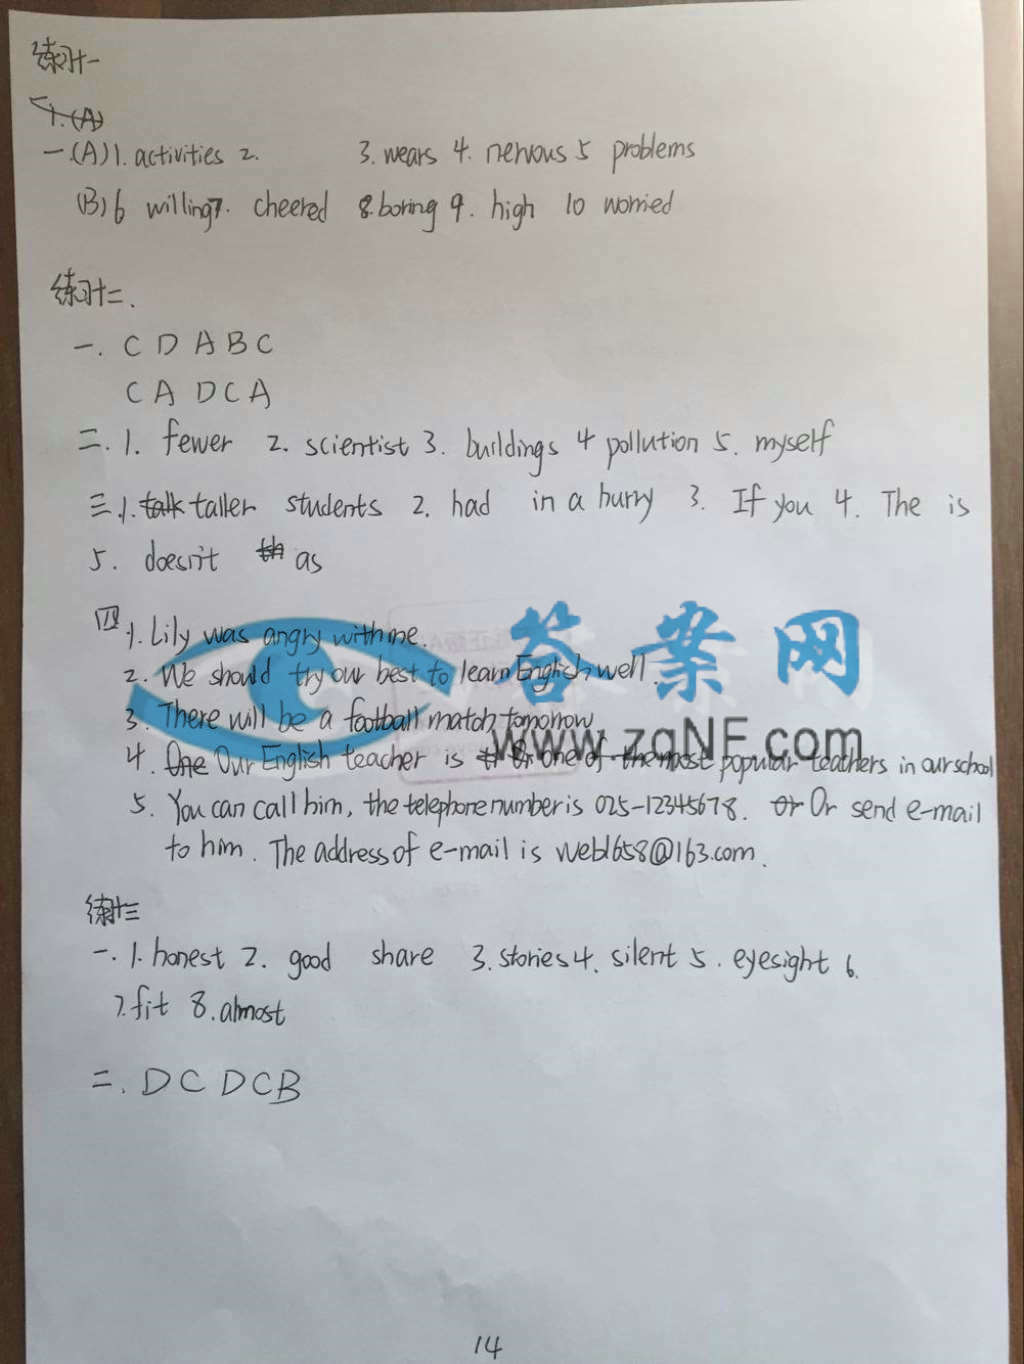 练习十一
1.(A)
一.(A)1. activities 2. 3. wears 4. nervous 5 problems
(B)6 willing 7. cheered 8. boring 9. high 10 worried
练习十二.
一. C D A B C
C A D C A
二. 1. fewer 2. scientist 3. buildings 4 pollution 5. myself
三.1. talk taller students 2. had in a hurry 3. If you 4. The is
5. doesn't th as
四 1. Lily was angry with me.
2. We should try our best to learn English well.
3. There will be a football match tomorrow
4. One Our English teacher is one of the most popular teachers in our school
5. You can call him, the telephone number is 025-12345678. or Or send e-mail
to him. The address of e-mail is web1658@163.com.
答案网
www.zqNF.com
练习十三
一. 1. honest 2. good share 3. stories 4. silent 5. eyesight 6.
7. fit 8. almost
二. D C D C B
14